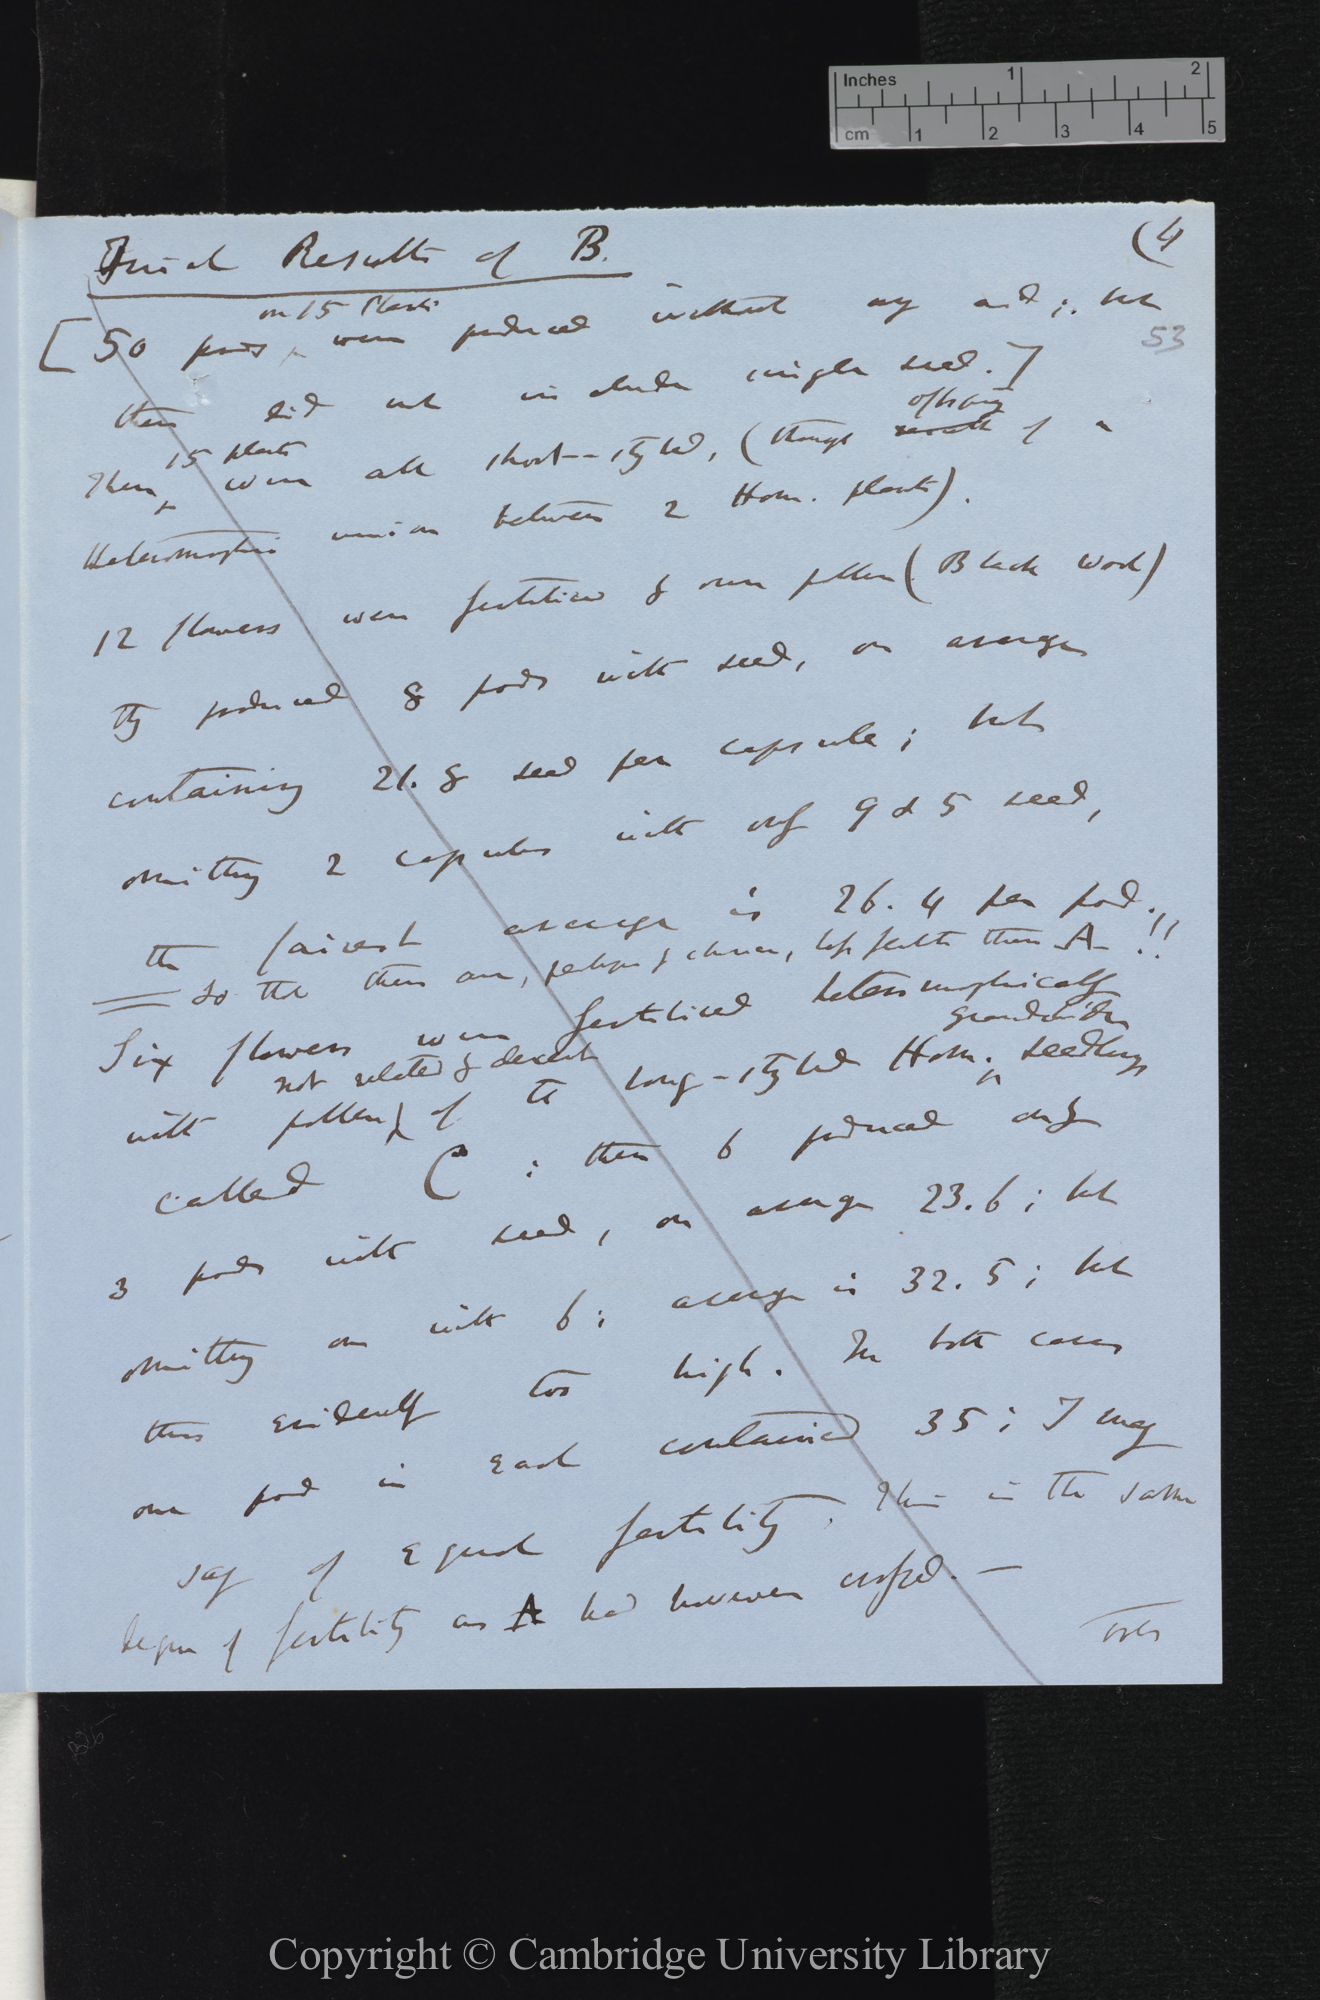 Inches 1 2
cm 1 2 3 4 5
(4
Final Results of B.
53
on 15 Plants
[50 pods were produced without any aid; but
these did not include single seed.]
15 plants offspring
These were all short-styled, (though result of a
Heteromorphic union between 2 Hom. plants).
12 flowers were fertilised by own pollen (Black wool)
they produced 8 pods with seed, on average
containing 21.8 seed per capsule; but
omitting 2 capsules with only 9 & 5 seed,
the fairest average is 26.4 per pod.
So that these are, perhaps by chance, less fertile than A !!
Six flowers were fertilised heteromorphically
not related by descent grandchildren
with pollen of the long-styled Hom. seedlings
called C; these 6 produced only
3 pods with seed, on average 23.6; but
omitting one with 6; average is 32.5; but
this evidently too high. In both cases
one pod in each contained 35; I may
say of equal fertility. This is the same
degree of fertility as A had however crossed. —
Over
Copyright © Cambridge University Library